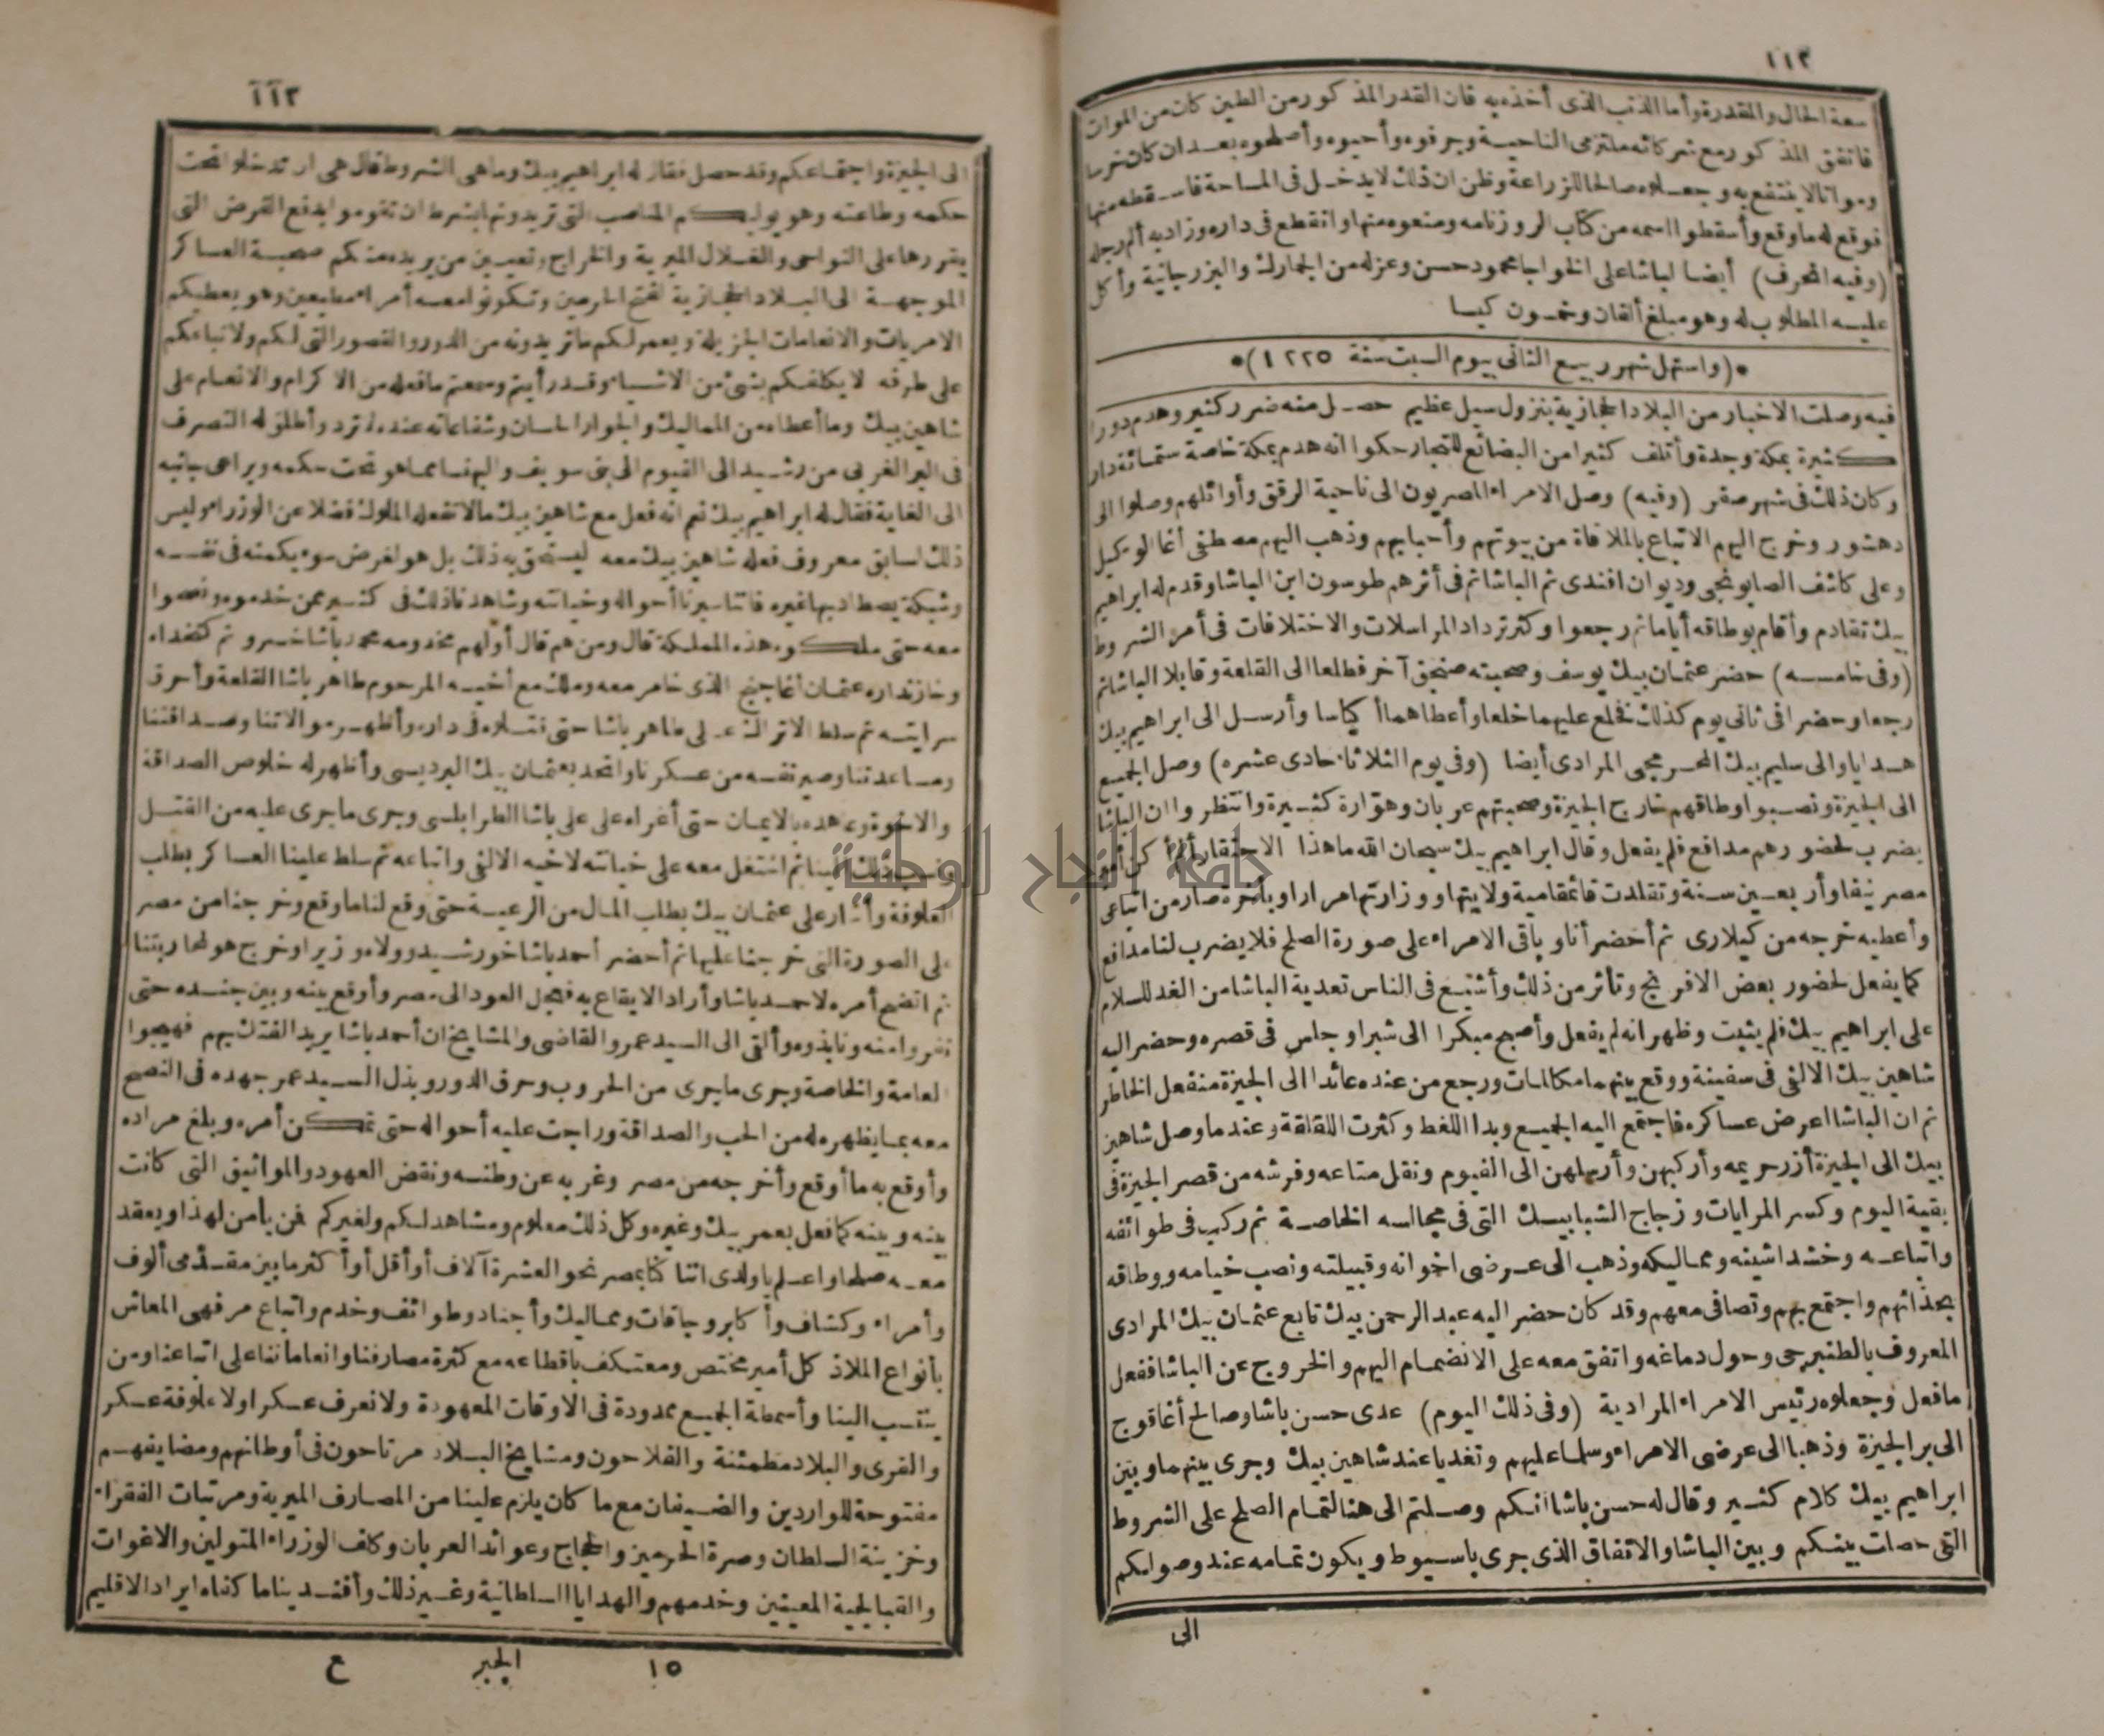 ١١٢
سعة الحال والمقدرة وأما الذنب الذى أخذه به فان القدر المذكور من الطين كان من الموات
فاتفق المذكور مع شركائه ملتزمى الناحية وجرفوه وأحيوه وأصلحوه بعد ان كان خرسا
ومواتا لا ينتفع به وجعلوه صالحا للزراعة وظن ان ذلك لا يدخل فى المساحة فاسقطه منها
فوقع له ما وقع وأسقطوا اسمه من كتاب الروزنامه ومنعوه منها وانقطع فى داره وزاد به ألم رجله
(وفيه انحرف) أيضا الباشا على الخواجا محمود حسن وعزله من الجمارك والبزرجانية وأكل
عليه المطلوب له وهو مبلغ ألفان وخمسون كيسا
*(واستهل شهر ربيع الثانى بيوم السبت سنة ١٢٢٥)*
فيه وصلت الاخبار من البلاد الحجازية بنزول سيل عظيم حصل منه ضرر كثير وهدم دورا
كثيرة بمكة وجدة وأتلف كثيرا من البضائع للتجار حكوا انه هدم بمكة خاصة ستمائة دار
وكان ذلك فى شهر صفر (وفيه) وصل الامراء المصريون الى ناحية الرقق وأوائلهم وصلوا الى
دهشور وخرج اليهم الاتباع بالملاقاة من بيوتهم وأحبابهم وذهب اليهم مصطفى أغا الوكيل
وعلى كاشف الصابونجى وديوان افندى ثم الباشا ثم فى أثرهم طوسون ابن الباشا وقدم له ابراهيم
بيك تقادم وأقام بوطاقه أياما ثم رجعوا وكثر ترداد المراسلات والاختلافات فى أمر الشروط
(وفى خامسه) حضر عثمان بيك يوسف وصحبته صنجق آخر فطلعا الى القلعة وقابلا الباشا ثم
رجعا وحضرا فى ثانى يوم كذلك فخلع عليهما خلعا وأعطاهما أكياسا وأرسل الى ابراهيم بيك
هدايا والى سليم بيك المحرمجى المرادى أيضا (وفى يوم الثلاثاء حادى عشره) وصل الجميع
الى الجيزة ونصبوا وطاقهم خارج الجيزة وصحبتهم عربان وهوّارة كثيرة وانتظروا ان الباشا
يضرب لحضورهم مدافع فلم يفعل وقال ابراهيم بيك سبحان الله ما هذا الاحتقار ألم أكن أمير
مصر نيفا وأربعين سنة وتقلدت قائمقامية ولايتها ووزارتها مرارا وبأخرة صار من اتباعى
وأعطيه خرجه من كيلارى ثم أحضر أنا وباقى الامراء على صورة الصلح فلا يضرب لنا مدافع
كما يفعل لحضور بعض الافرنج وتأثر من ذلك وأشيع فى الناس تعدية الباشا من الغد للسلام
على ابراهيم بيك فلم يثبت وظهر انه لم يفعل وأصبح مبكرا الى شبرا وجلس فى قصره وحضر اليه
شاهين بيك الالفى فى سفينة ووقع بينهما مكالمات ورجع من عنده عائدا الى الجيزة منفعل الخاطر
ثم ان الباشا اعرض عساكره فاجتمع اليه الجميع وبدا اللغط وكثرت اللقلقة وعندما وصل شاهين
بيك الى الجيزة أزر حريمه وأركبهن وأرسلهن الى الفيوم ونقل متاعه وفرشه من قصر الجيزة فى
بقية اليوم وكسر المرايات وزجاج الشبابيك التى فى مجالسه الخاصة ثم ركب فى طوائفه
واتباعه وخشداشينه ومماليكه وذهب الى عرضى اخوانه وقبيلته ونصب خيامه ووطاقه
بحذائهم واجتمع بهم وتصافى معهم وقد كان حضر اليه عبد الرحمن بيك تابع عثمان بيك المرادى
المعروف بالطنبرجى وحول دماغه واتفق معه على الانضمام اليهم والخروج عن الباشا ففعل
ما فعل وجعلوه رئيس الامراء المرادية (وفى ذلك اليوم) عدى حسن باشا وصالح أغا قوج
الى بر الجيزة وذهبا الى عرضى الامراء وسلما عليهم وتغديا عند شاهين بيك وجرى بينهما وبين
ابراهيم بيك كلام كثير وقال له حسن باشا انكم وصلتم الى هنا لتمام الصلح على الشروط
التى حصلت بينكم وبين الباشا والاتفاق الذى جرى باسيوط ويكون تمامه عند وصولكم
الى
١١٣
الى الجيزة واجتماعكم وقد حصل فقال له ابراهيم بيك وما هى الشروط قال هى ان تدخلوا تحت
حكمه وطاعته وهو يوليكم المناصب التى تريدونها بشرط ان تقوموا بدفع الفرض التى
يقررها على النواحى والغلال الميرية والخراج وتعيين من يريده منكم صحبة العساكر
الموجهة الى البلاد الحجازية لفتح الحرمين وتكونوا معه أمراء مطيعين وهو يعطيكم
الامريات والانعامات الجزيلة ويعمر لكم ما تريدونه من الدور والقصور التى لكم ولاتباعكم
على طرفه لا يكلفكم بشئ من الاشياء وقد رأيتم وسمعتم ما فعله من الاكرام والانعام على
شاهين بيك وما أعطاه من المماليك والجوار الحسان وشفاعاته عنده لا ترد وأطلق له التصرف
فى البر الغربى من رشيد الى الفيوم الى بنى سويف والبهنسا مما هو تحت حكمه ويراعى جانبه
الى الغاية فقال له ابراهيم بيك نعم انه فعل مع شاهين بيك ما لا تفعله الملوك فضلا عن الوزراء وليس
ذلك لسابق معروف فعله شاهين بيك معه ليستحق به ذلك بل هو لغرض سوء يكمنه فى نفسه
وشبكة يصطاد بها غيره فاننا سبرنا أحواله وخيانته وشاهدنا ذلك فى كثير ممن خدموه ونصحوا
معه حتى ملكوه هذه المملكة قال ومن هم قال أولهم مخدومه محمد باشا خسرو ثم كتخداه
وخازنداره عثمان أغا جنج الذى خامر معه وملك مع أخيه المرحوم طاهر باشا القلعة وأحرق
سرايته ثم سلط الاتراك على طاهر باشا حتى قتلوه فى داره وأظهر موالاتنا وصداقتنا
ومساعدتنا وصير نفسه من عسكرنا واتحد بعثمان بيك البرديسى وأظهر له خلوص الصداقة
والاخوة وعاهده بالايمان حتى أغراه على على باشا الطرابلسى وجرى ما جرى عليه من القتل
ونسب ذلك الينا ثم اشتغل معه على خيانته لاخيه الالفى واتباعه ثم سلط علينا العساكر بطلب
العلوفة وأشار على عثمان بيك بطلب المال من الرعية حتى وقع لنا ما وقع وخرجنا من مصر
على الصورة التى خرجنا عليها ثم أحضر أحمد باشا خورشيد وولاه وزيرا وخرج هو لمحاربتنا
ثم اتضح أمره لاحمد باشا وأراد الايقاع به فعجل العود الى مصر وأوقع بينه وبين جنده حتى
نفروا منه ونابذوه وألقى الى السيد عمر والقاضى والمشايخ ان أحمد باشا يريد الفتك بهم فهيجوا
العامة والخاصة وجرى ما جرى من الحروب وحرق الدور وبذل السيد عمر جهده فى النصح
معه بما يظهره له من الحب والصداقة وراجت عليه أحواله حتى تمكن أمره وبلغ مراده
وأوقع به ما أوقع وأخرجه من مصر وغربه عن وطنه ونقض العهود والمواثيق التى كانت
بينه وبينه كما فعل بعمر بيك وغيره وكل ذلك معلوم ومشاهد لكم ولغيركم فمن يأمن لهذا ويعقد
معه صلحا واعلم يا ولدى اننا كنا بمصر نحو العشرة آلاف أو أقل أو أكثر ما بين مقدّمى ألوف
وأمراء وكشاف وأكابر وجاقات ومماليك وأجناد وطوائف وخدم واتباع مرفهى المعاش
بأنواع الملاذ كل أمير مختص ومعتكف باقطاعه مع كثرة مصارفنا وانعاماتنا على اتباعنا ومن
ينتسب الينا وأسمطة الجميع ممدودة فى الاوقات المعهودة ولا نعرف عسكرا ولا علوفة عسكر
والقرى والبلاد مطمئنة والفلاحون ومشايخ البلاد مرتاحون فى أوطانهم ومضايفهم
مفتوحة للواردين والضيفان مع ما كان يلزم علينا من المصارف الميرية ومرتبات الفقراء
وخزينة السلطان وصرة الحرمين والحجاج وعوائد العربان وكلف الوزراء المتولين والاغوات
والقبابجية المعينين وخدمهم والهدايا السلطانية وغير ذلك وأفندينا ما كفاه ايراد الاقليم
١٥ الجبر ع
جامعة النجاح الوطنية